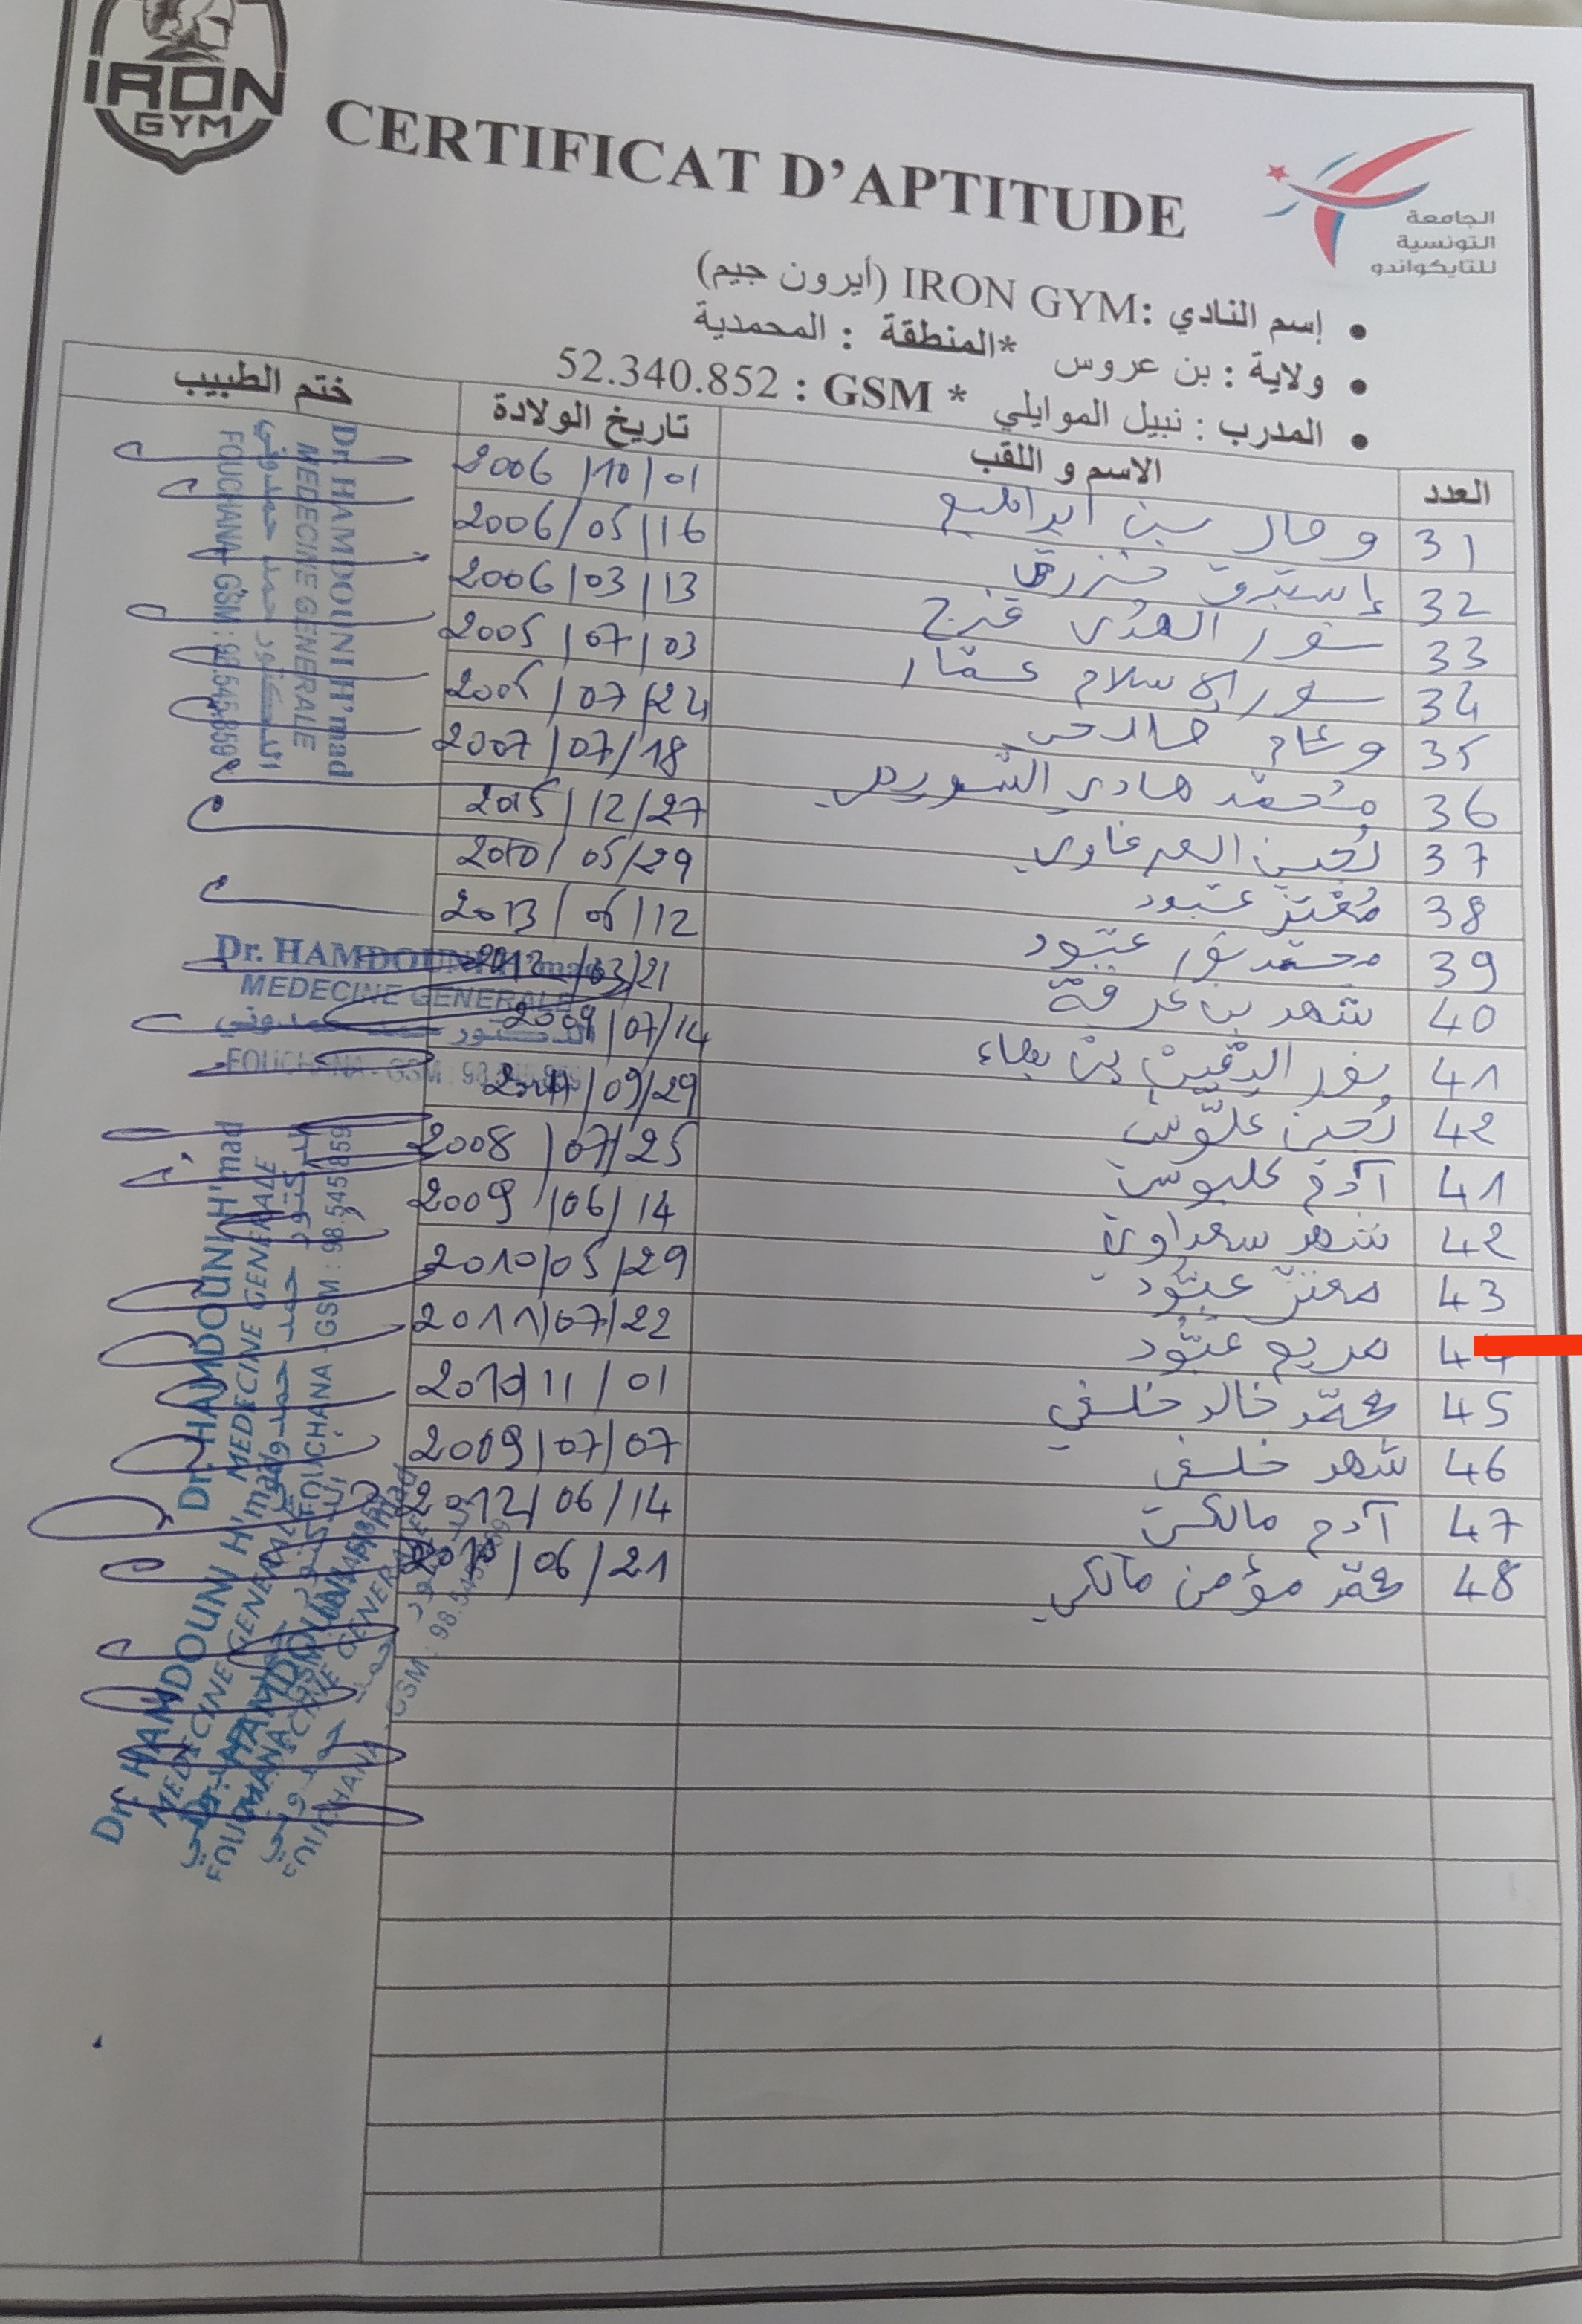 IRON
GYM
CERTIFICAT D'APTITUDE
الجامعة
التونسية
للتايكواندو
إسم النادي :IRON GYM (أيرون جيم)
ولاية : بن عروس *المنطقة : المحمدية
المدرب : نبيل الموايلي * GSM : 52.340.852
العدد الاسم و اللقب تاريخ الولادة ختم الطبيب
31 بن ابراهيم 2006/10/01
32 إستبرق 2006/05/16
33 نور الهدى فرج 2006/03/13
34 نور الإسلام عمّار 2005/07/03
35 وئام 07/24
36 محمد هادي 2007/07/18
37 لجين 2015/12/27
38 مُعتز عبود 2010/05/29
39 محمد نور عبّود 2013/06/12
40 شهد بن عرفة 03/21
41 نور اليقين بن بهاء 2009/07/14
42 لجين علّوش 09/29
41 آدم علوش 2008/07/25
42 شهد سعداوي 2009/06/14
43 معتز عبّود 2010/05/29
44 مريم عبّود 2011/07/22
45 محمّد خالد خلفي 2010/11/01
46 شهد خلفي 2009/07/07
47 آدم مالكي 2012/06/14
48 محمّد مؤمن مالكي 2010/06/21
Dr. HAMDOUNI H'mad
MEDECINE GENERALE
الدكتور حمد حمدوني
FOUCHANA - GSM : 98.545.859
Dr. HAMDOUNI H'mad
MEDECINE GENERALE
الدكتور حمدوني
FOUCHANA - GSM : 98
Dr. HAMDOUNI H'mad
MEDECINE GENERALE
الدكتور حمد حمدوني
FOUCHANA - GSM : 98.545.859
Dr. HAMDOUNI H'mad
MEDECINE GENERALE
FOUCHANA
HAMDOUNI H'mad
MEDECINE GENERALE
FOUCHANA - GSM : 98.545.859